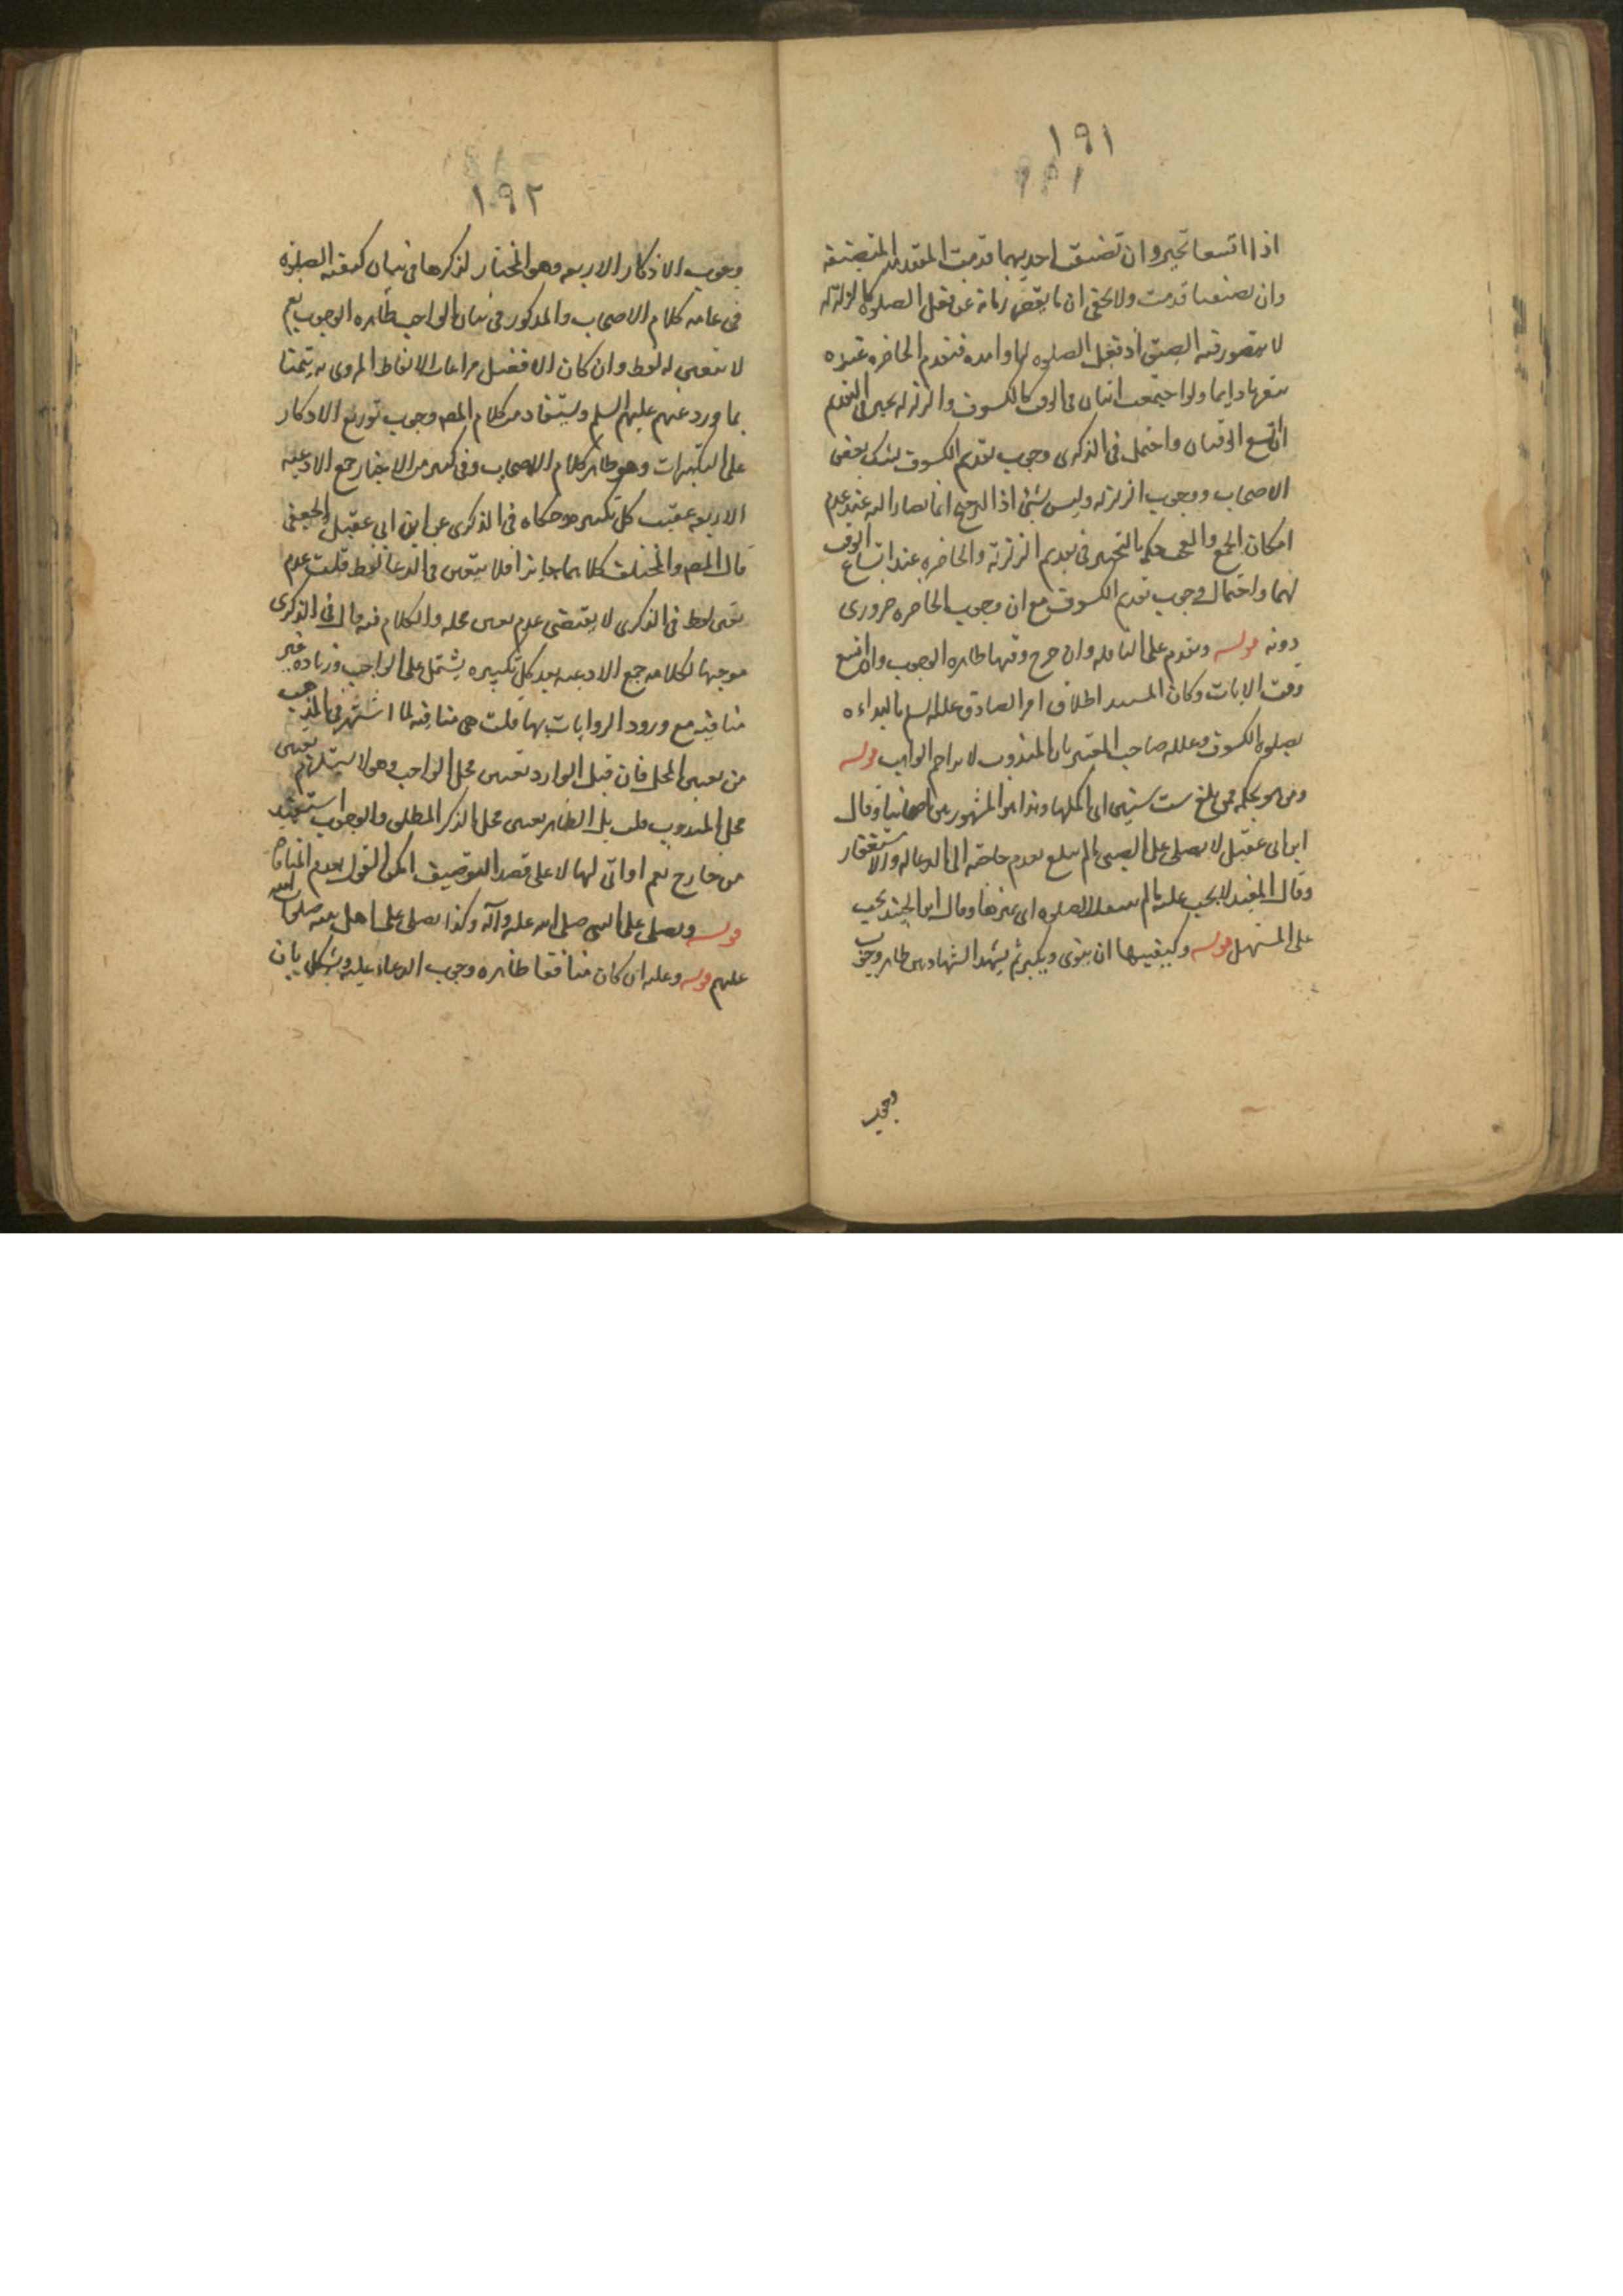 ١٩١
اذا اتسعا تخير وان تضيقت احديهما قدمت المتضيقه
وان تضيقتا قدمت ولا يخفى ان ما يقصر زمانه عن فعل الصلوة كالزلزله
لا يتصور فيه الضيق اذ فعل الصلوه لها فتقدم الحاضره عنده
دايما ولو اجتمعت ايتان فى الوقت كالكسوف والزلزله تخير فى التقديم
ان اتسع الوقتان واحتمل فى الذكرى وجوب تقديم الكسوف لشك بعض
الاصحاب فى وجوب الزلزله وليس بشئ اذ الترجيح انما يصار اليه عند عدم
امكان الجمع والمص حكم بالتخيير فى تقديم الزلزلة والحاضره عند اتساع الوقت
لهما واحتمال وجوب تقديم الكسوف مع ان وجوب الحاضره ضرورى
دونه قوله وتقدم على النافله وان خرج وقتها ظاهره الوجوب وان اتسع
وقت الايات وكان المستند اطلاق امر الصادق عليه السلم بالبداءه
بصلوة الكسوف وعلله صاحب المعتبر بان المندوب لا يزاحم الواجب قوله
ومن هو بحكمه ممن بلغ ست سنين اى اكملها وهذا هو المشهور بين اصحابنا وقال
ابن ابى عقيل لا يصلى على الصبى ما لم يبلغ لعدم حاجته الى الدعا له والاستغفار
وقال المفيد لا يجب عليه ما لم يعقل الصلوه اى غيرها وقال ابن الجنيد يجب
على المستهل قوله وكيفيتها ان ينوى ويكبر ثم يشهد الشهادتين ظاهر وجوب
وجوب
١٩٢
وجوب الاذكار الاربعه وهو المختار لذكرها فى بيان كيفيه الصلوة
فى عامه كلام الاصحاب والمذكور فى بيان الواجب ظاهره الوجوب نعم
لا يتعين له لفظ وان كان الافضل مراعاة الالفاظ المروى به تيمنا
بما ورد عنهم عليهم السلم ويستفاد من كلام المص وجوب توزيع الاذكار
على التكبيرات وهو ظاهر كلام الاصحاب وفى كثير من الاخبار جمع الادعيه
الاربعه عقيب كل تكبير وحكاه فى الذكرى عن ابن ابى عقيل والجعفى
قال المص والمختلف كلاهما جايز افلا يتعين فى الدعا لفظ قلت عدم
تعين لفظ فى الذكرى لا يقتضى عدم تعين محله والكلام فيه قال فى الذكرى
موجها لكلامه جمع الادعيه بعد كل تكبيره يشتمل على الواجب وزيادة غير
منافيه مع ورود الروايات بها قلت هى منافيه لما اشتهر فى المذهب
من تعين المحل فان قيل الوارد تعين محل الواجب وهو لا يستلزم تعين
محل المندوب قلت بل الظاهر تعين محل الذكر المطلق والوجوب استفيد
من خارج نعم لو اتى لها لا على قصد التوقيف امكن القول بعدم المنافاة
قوله ويصلى على النبى صلى الله عليه وآله وكذا يصلى على اهل بيته صلى الله
عليهم قوله وعليه ان كان منافقا ظاهره وجوب الدعاء عليه ويشكل بان